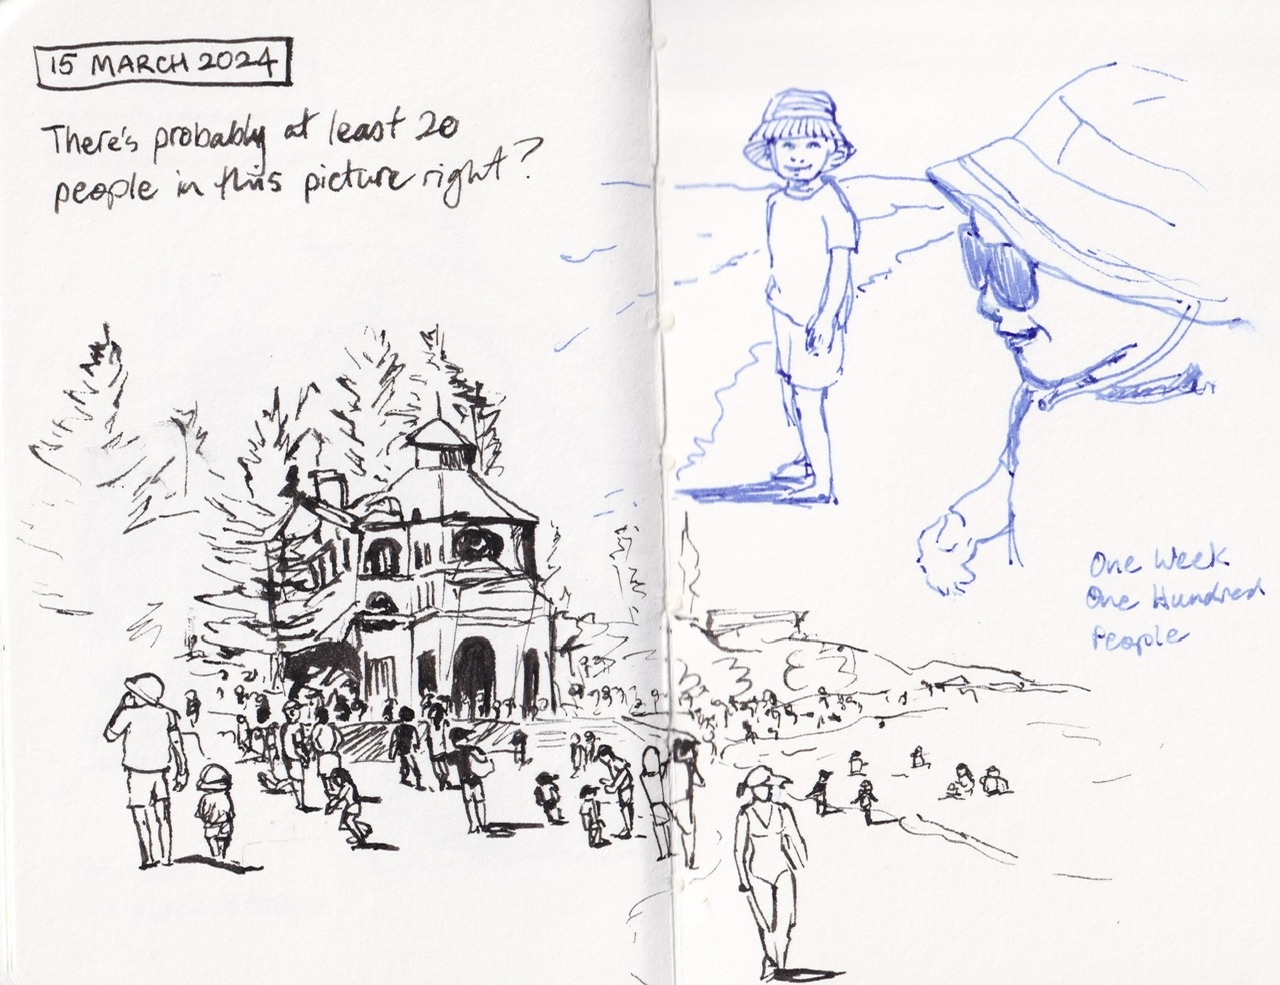 15 MARCH 2024
There's probably at least 20
people in this picture right?
One Week
One Hundred
People